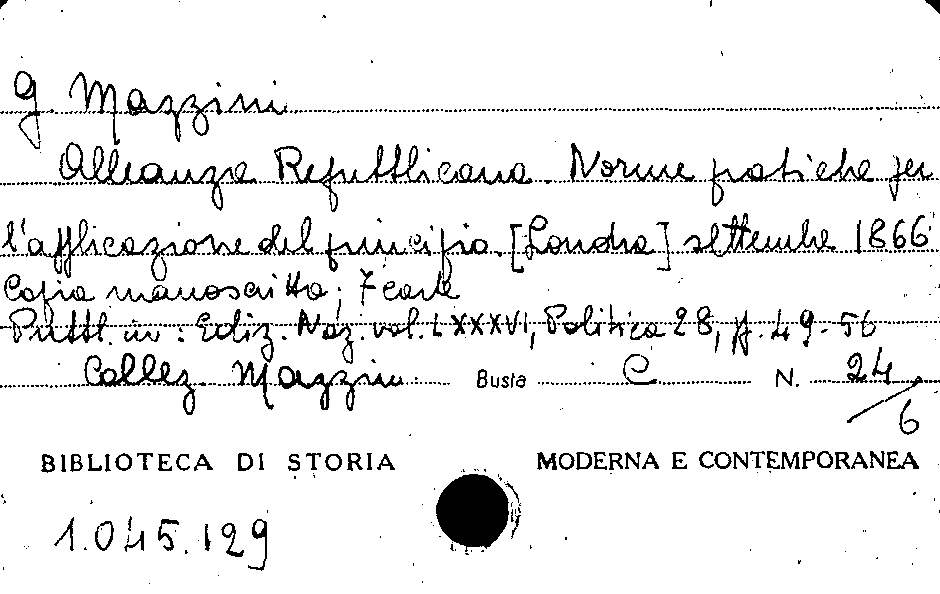 G. Mazzini
Alleanza Repubblicana. Norme pratiche per
l'applicazione del principio. [Londra] settembre 1866
Copia manoscritta; 7 carte
Pubbl. in: Ediz. Naz. vol. LXXXVI, Politica 28, p. 49-56
Collez. Mazzini Busta C N. 24/6
BIBLIOTECA DI STORIA MODERNA E CONTEMPORANEA
1.045.129